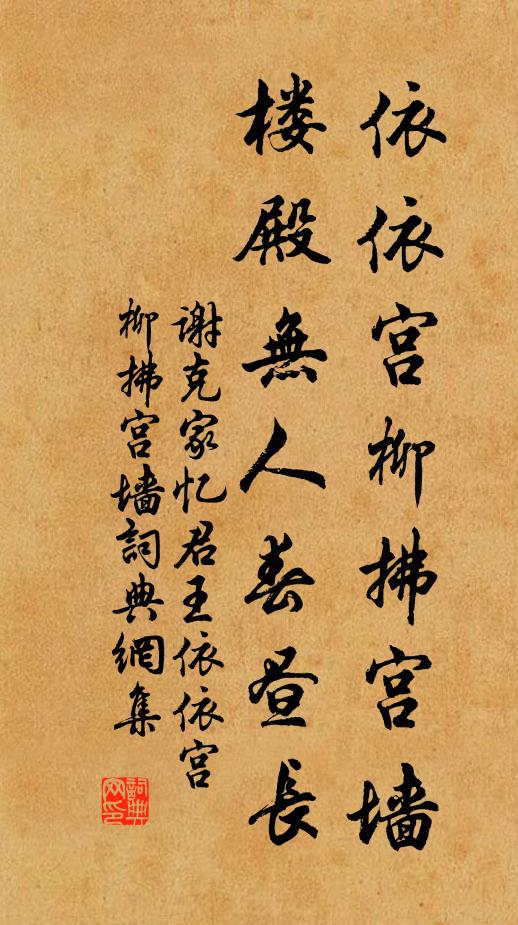 依依宫柳拂宫墙
楼殿無人春昼長
谢克家忆君王依依宫
柳拂宫墙詞典網集
詞典
网印